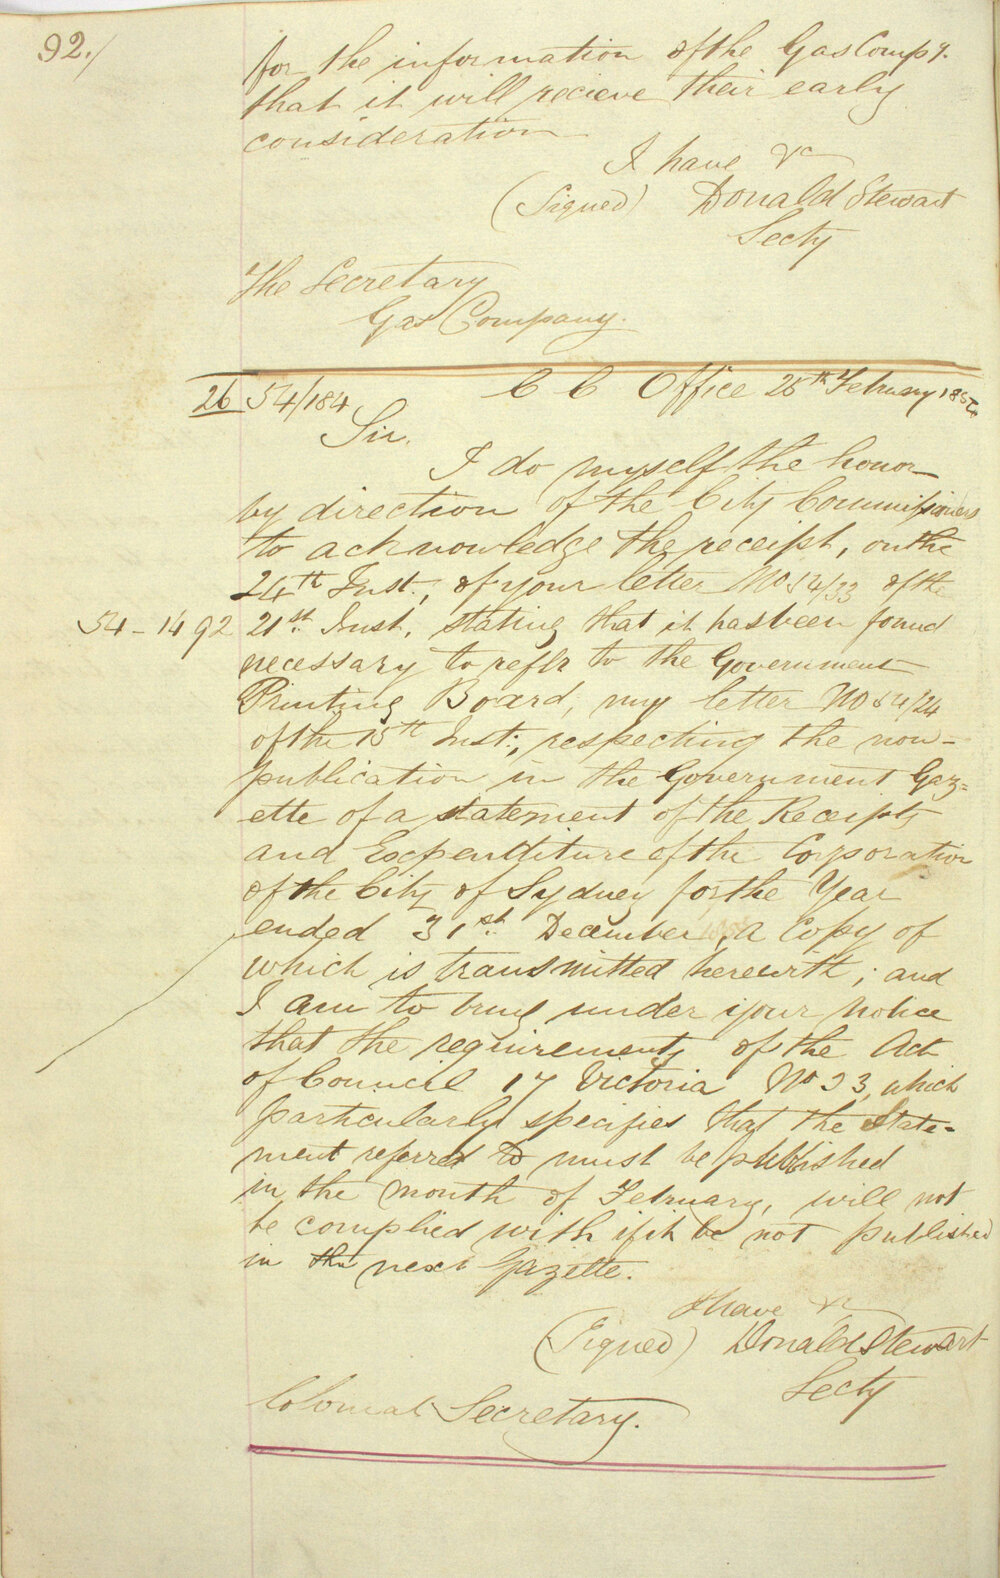 92./
for the information of the Gas Compy.
that it will recieve their early
consideration
I have &c
(Signed) Donald Stewart
Secty
The Secretary
Gas Company.
26 54/184 C C Office 25th February 1854
Sir.
I do myself the honor
by direction of the City Commissioners
to acknowledge the receipt, on the
24th Inst., of your letter No 54/33 of the
54-1492 21st Inst. stating that it has been found
necessary to refer to the Government
Printing Board, my letter No 54/24
of the 15th Inst:, respecting the non-
publication in the Government Gaz=
ette of a statement of the Receipts
and Expenditure of the Corporation
of the City of Sydney for the Year
ended 31st December, a Copy of
which is transmitted herewith; and
I am to bring under your notice
that the requirements of the Act
of Council 17 Victoria No 33, which
particularly specifies that the State-
ment referred to must be published
in the month of February, will not
be complied with if it be not published
in the next Gazette.
I have &c
(Signed) Donald Stewart
Secty
Colonial Secretary.